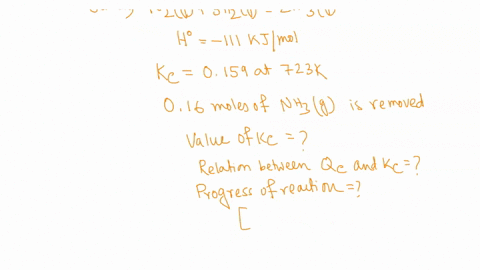 H° = -111 KJ/mol
Kc = 0.159 at 723K
0.16 moles of NH3(g) is removed
Value of Kc = ?
Relation between Qc and Kc = ?
Progress of reaction = ?
[